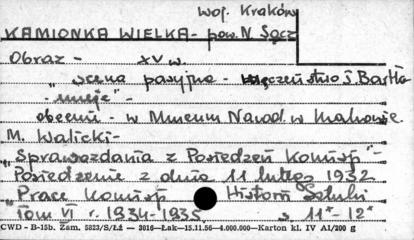 woj. Kraków
KAMIONKA WIELKA - pow. N. Sącz
Obraz - XV w.
"scena pasyjna - Męczeństwo ś. Bartło
mieja" -
obecnie - w Muzeum Narod. w Krakowie.
M. Walicki -
"Sprawozdania z Posiedzeń Komisji" -
Posiedzenie z dnia 11 lutego 1932.
"Prace Komisji Historii Sztuki
Tom VI r. 1934-1935. s. 11* - 12*
CWD - B-15b. Zam. 5823/S/Łź — 3016—Łak—15.11.56—4.000.000—Karton kl. IV A1/200 g